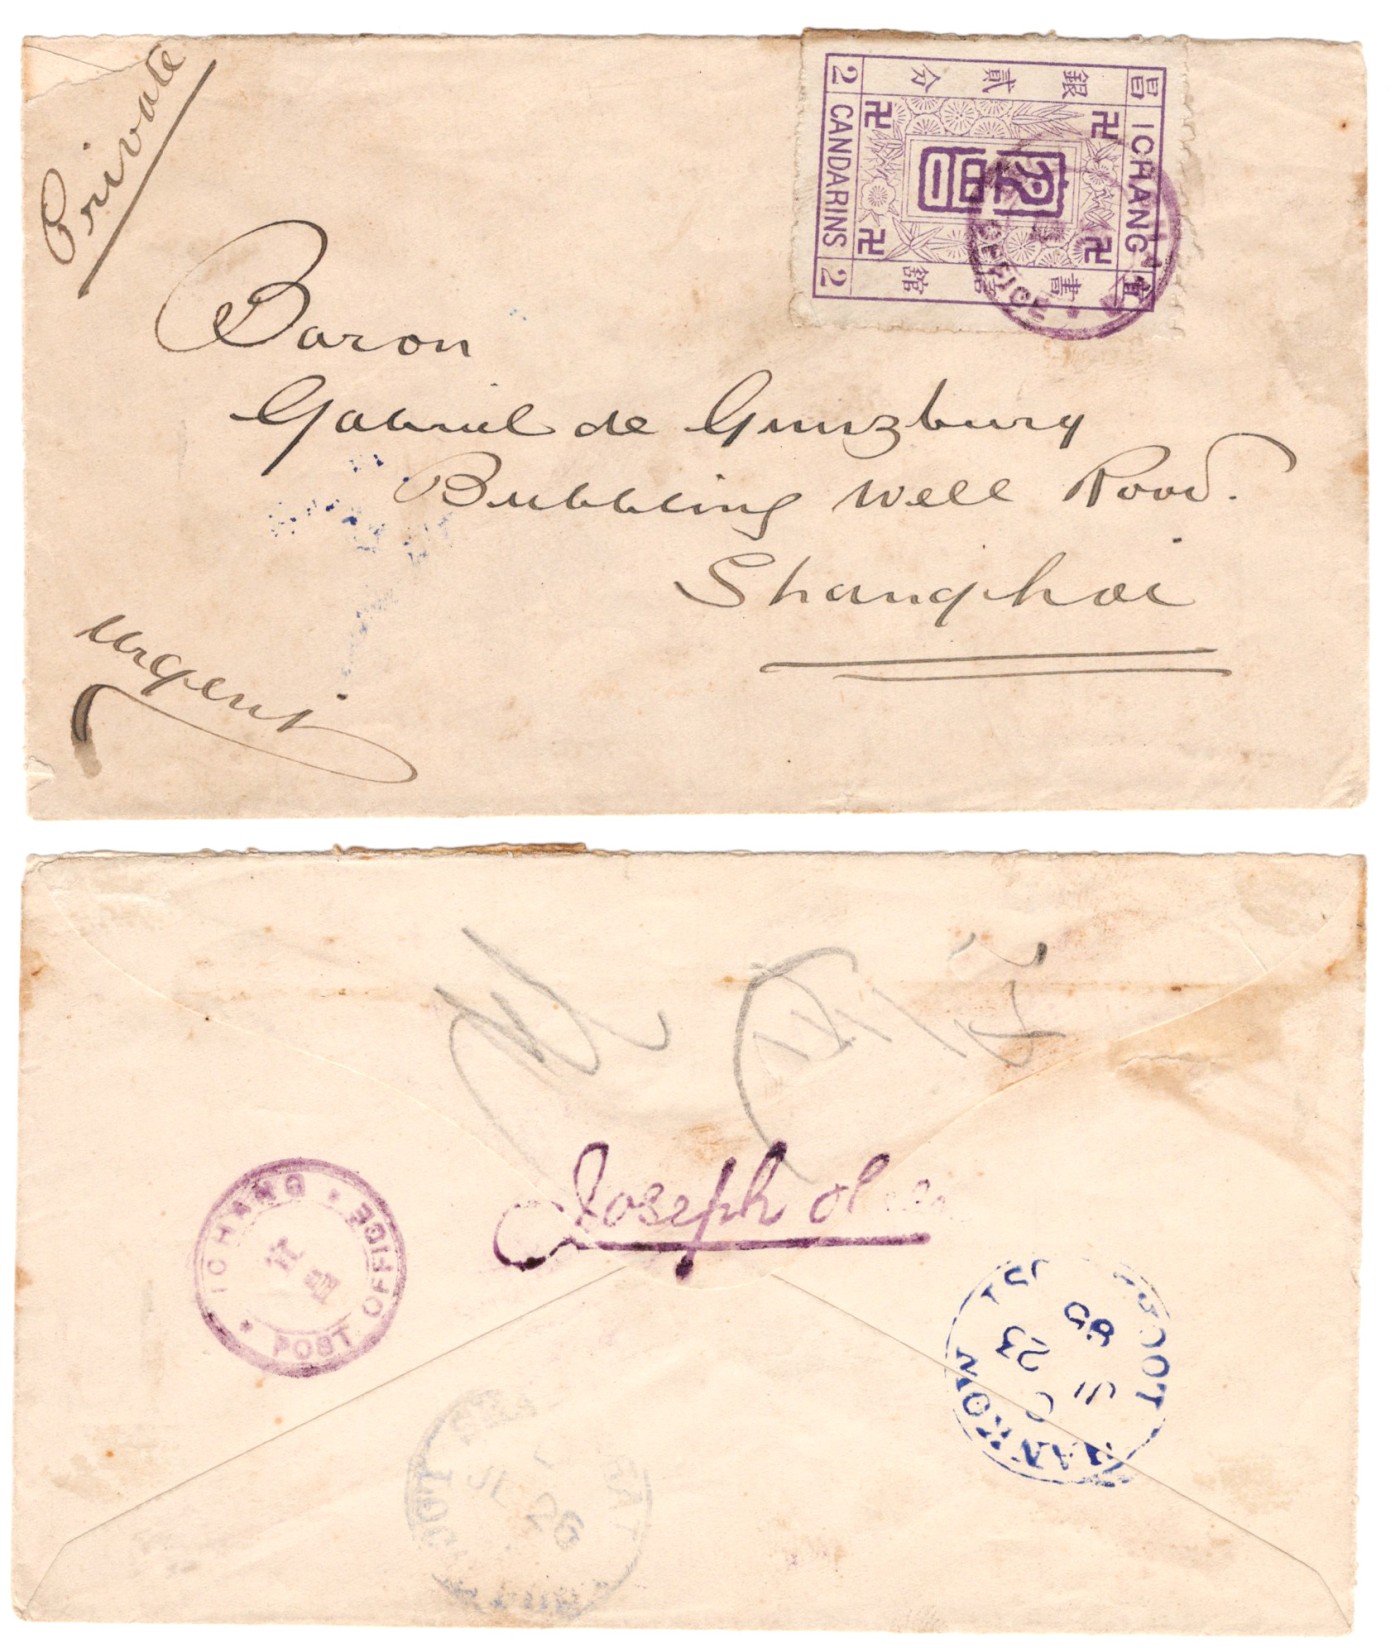 Private
昌 ICHANG 宜
銀貳分
書信館
2 CANDARINS 2
OFFICE
Baron
Gabriel de Gunzburg
Bubbling Well Road.
Shanghai
Urgent
Joseph
ICHANG * POST OFFICE *
HANKOW
LOCAL POST
23
95
JL
26